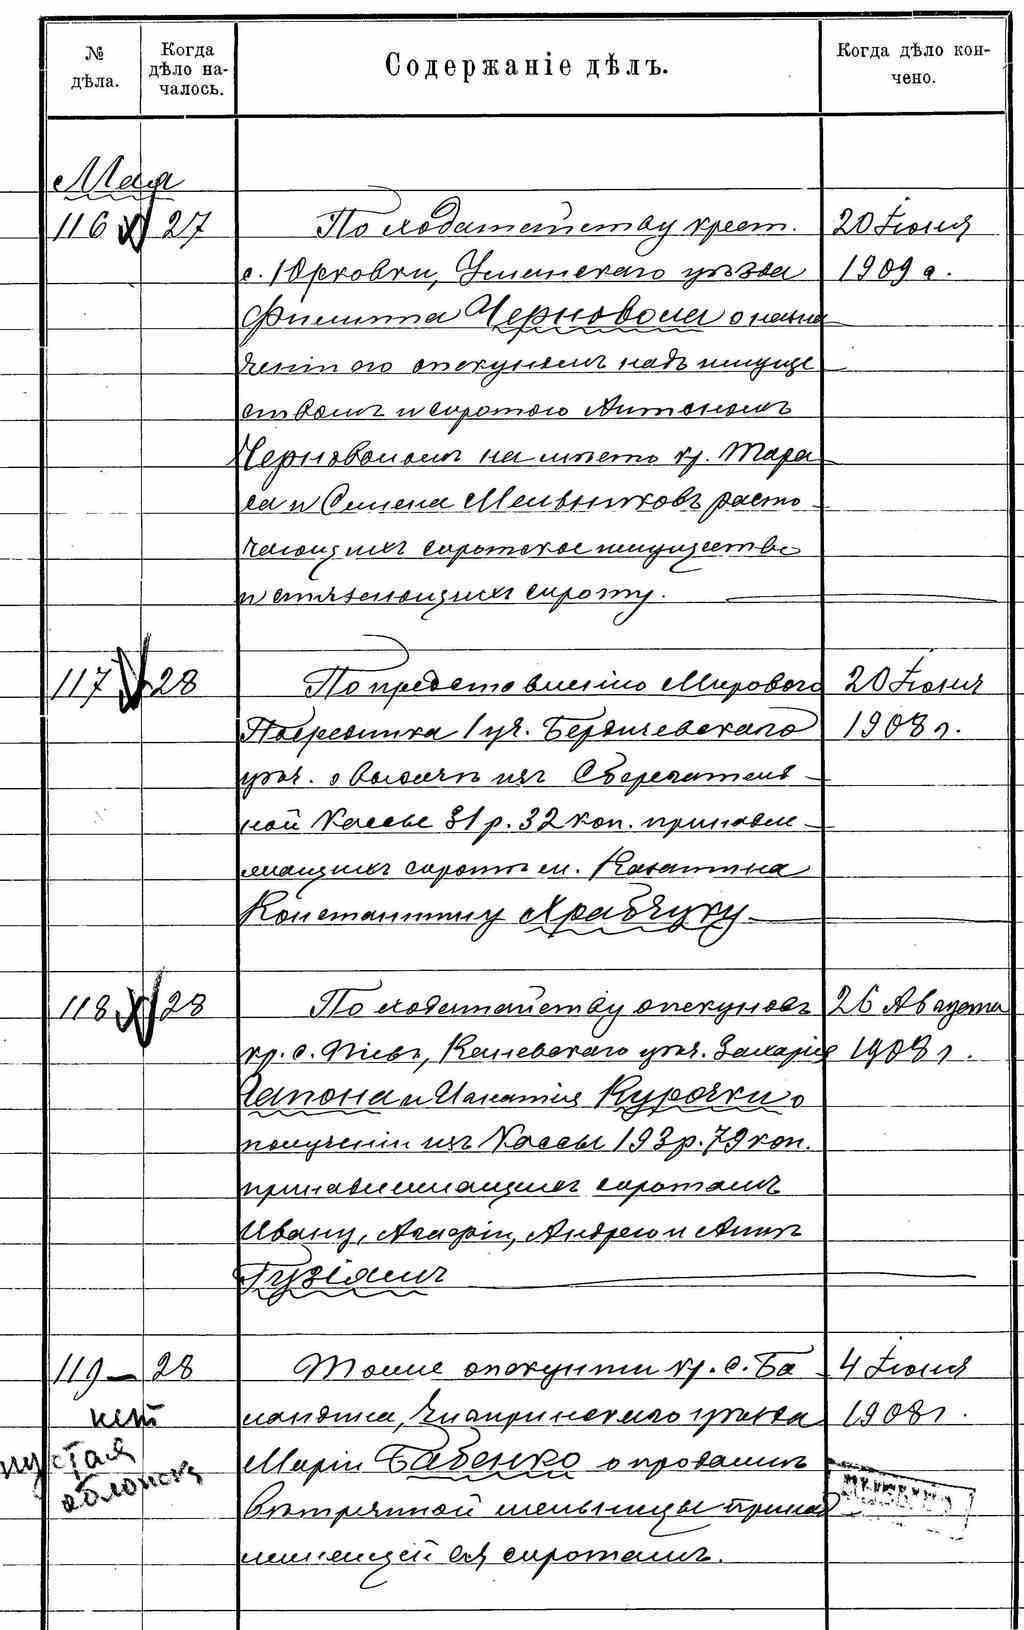 № дѣла.
Когда дѣло началось.
Содержаніе дѣлъ.
Когда дѣло кончено.
Мая
116 27 По ходатайству крест. 20 Іюня
с. Юрковки, Уманскаго уѣзда 1909 г.
Филиппа Черновола о назна
ченіи его опекуномъ надъ имуще
ствомъ и сиротою Антономъ
Черноволомъ на мѣсто кр. Тара
са и Семена Мельниковъ расто
чающихъ сиротское имущество
и сироту.
117 28 По представленію Мирового 20 Іюня
Посредника 1 уч. Бердичевскаго 1908 г.
уѣз. о высылкѣ изъ Сберегатель
ной Кассы 31 р. 32 коп. принадле
жащихъ сиротѣ м. Казатина
Константину Храбчуку
118 28 По ходатайству опекуновъ 26 Августа
кр. с. Каневскаго уѣз. Захарія 1908 г.
Чапона и Игнатія Курочки о
полученіи изъ Кассы 193 р. 79 коп.
принадлежащихъ сиротамъ
Ивану, Андрею и Аннѣ
Гузіямъ
119 — 28 Тоже опекунши кр. с. Ба 4 Іюня
ландина, Чигиринскаго уѣзда 1908 г.
нет
Маріи Бабенко о продажѣ
пустая
обложка
вѣтрянной мельницы принад
лежащей ея сиротамъ.